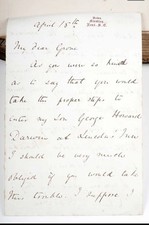 April 18th
Down,
Beckenham,
Kent. S.E.
My dear Groom
As you were so kind
as to say that you would
take the proper steps to
enter my Son George Howard
Darwin at Lincoln's Inn
I should be very much
obliged if you would take
this trouble. I suppose I